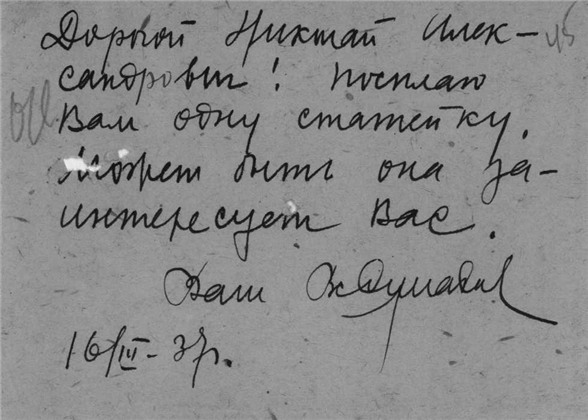 Дорогой Николай Алек-
сандрович! Посылаю
Вам одну статейку.
Может быть она за-
интересует Вас.
Ваш
16/III - 37г.